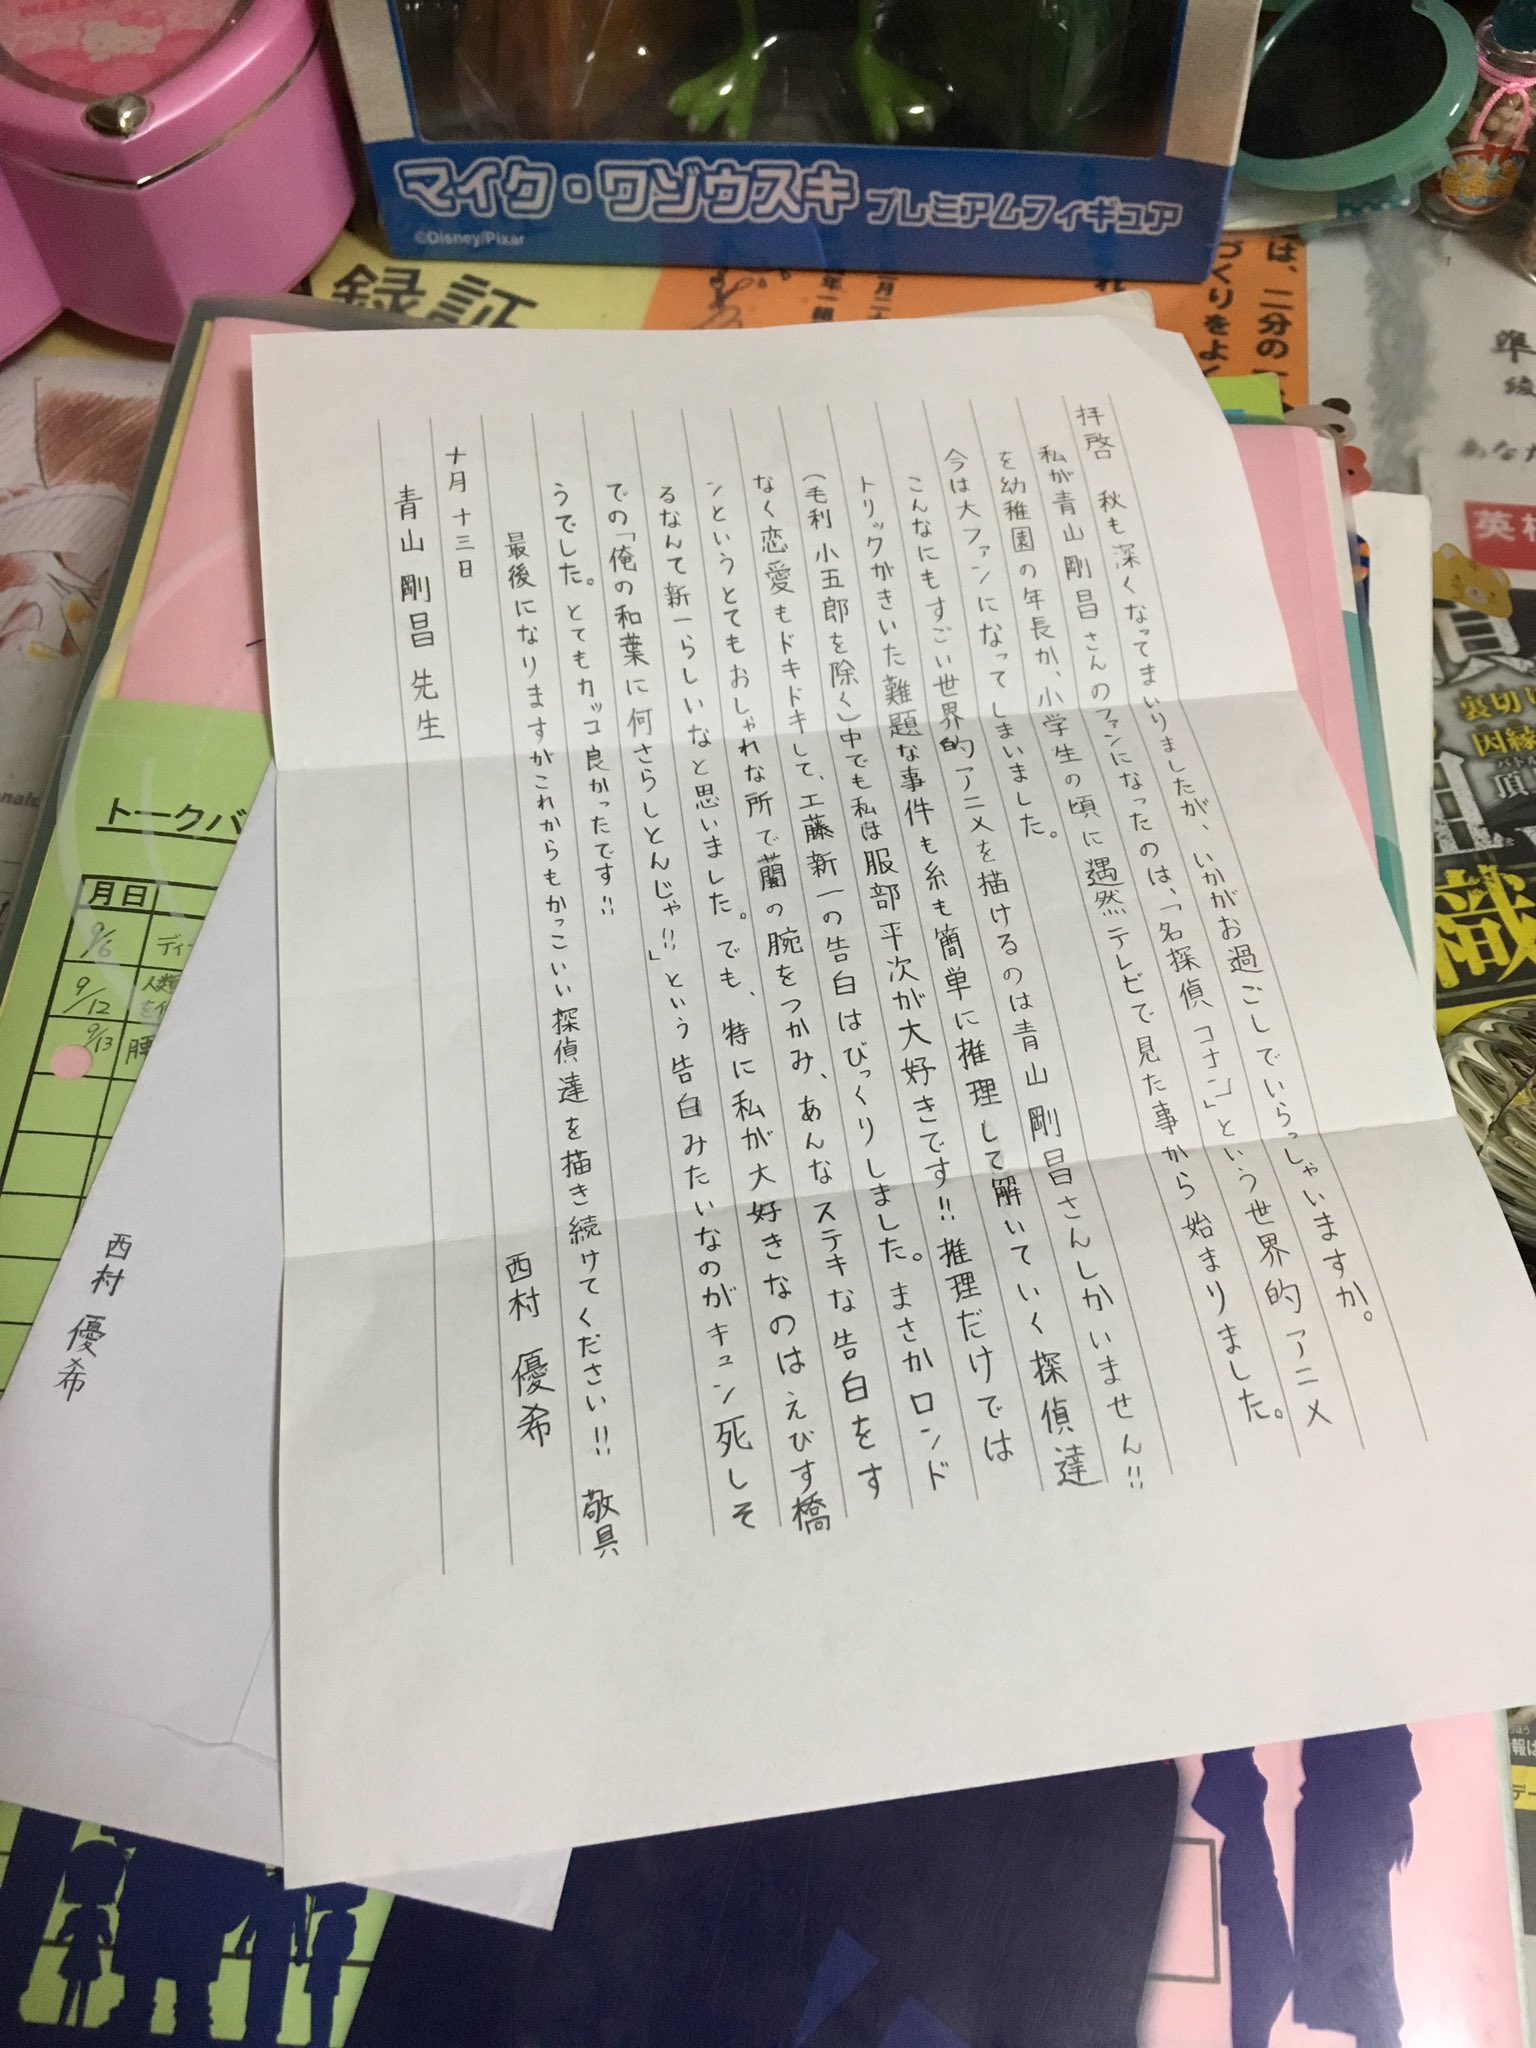 マイク・ワゾウスキ プレミアムフィギュア
©Disney/Pixar
録証
は、二分の一
づくりをよく
準
英検
裏切
因縁
頂
拝啓 秋も深くなってまいりましたが、いかがお過ごしでいらっしゃいますか。
私が青山剛昌さんのファンになったのは、「名探偵コナン」という世界的アニメ
を幼稚園の年長か、小学生の頃に遇然テレビで見た事から始まりました。
今は大ファンになってしまいました。
こんなにもすごい世界的アニメを描けるのは青山剛昌さんしかいません!!
トリックがきいた難題な事件も糸も簡単に推理して解いていく探偵達
(毛利小五郎を除く)中でも私は服部平次が大好きです!!推理だけでは
なく恋愛もドキドキして、工藤新一の告白はびっくりしました。まさかロンド
ンというとてもおしゃれな所で蘭の腕をつかみ、あんなステキな告白をす
るなんて新一らしいなと思いました。でも、特に私が大好きなのはえびす橋
での「俺の和葉に何さらしとんじゃ!!」という告白みたいなのがキュン死しそ
うでした。とてもカッコ良かったです!!
最後になりますがこれからもかっこいい探偵達を描き続けてください!! 敬具
十月十三日
西村 優希
青山 剛昌 先生
トークバ
月日
9/6
ディ
9/12
人類
9/13
腰
西村 優希